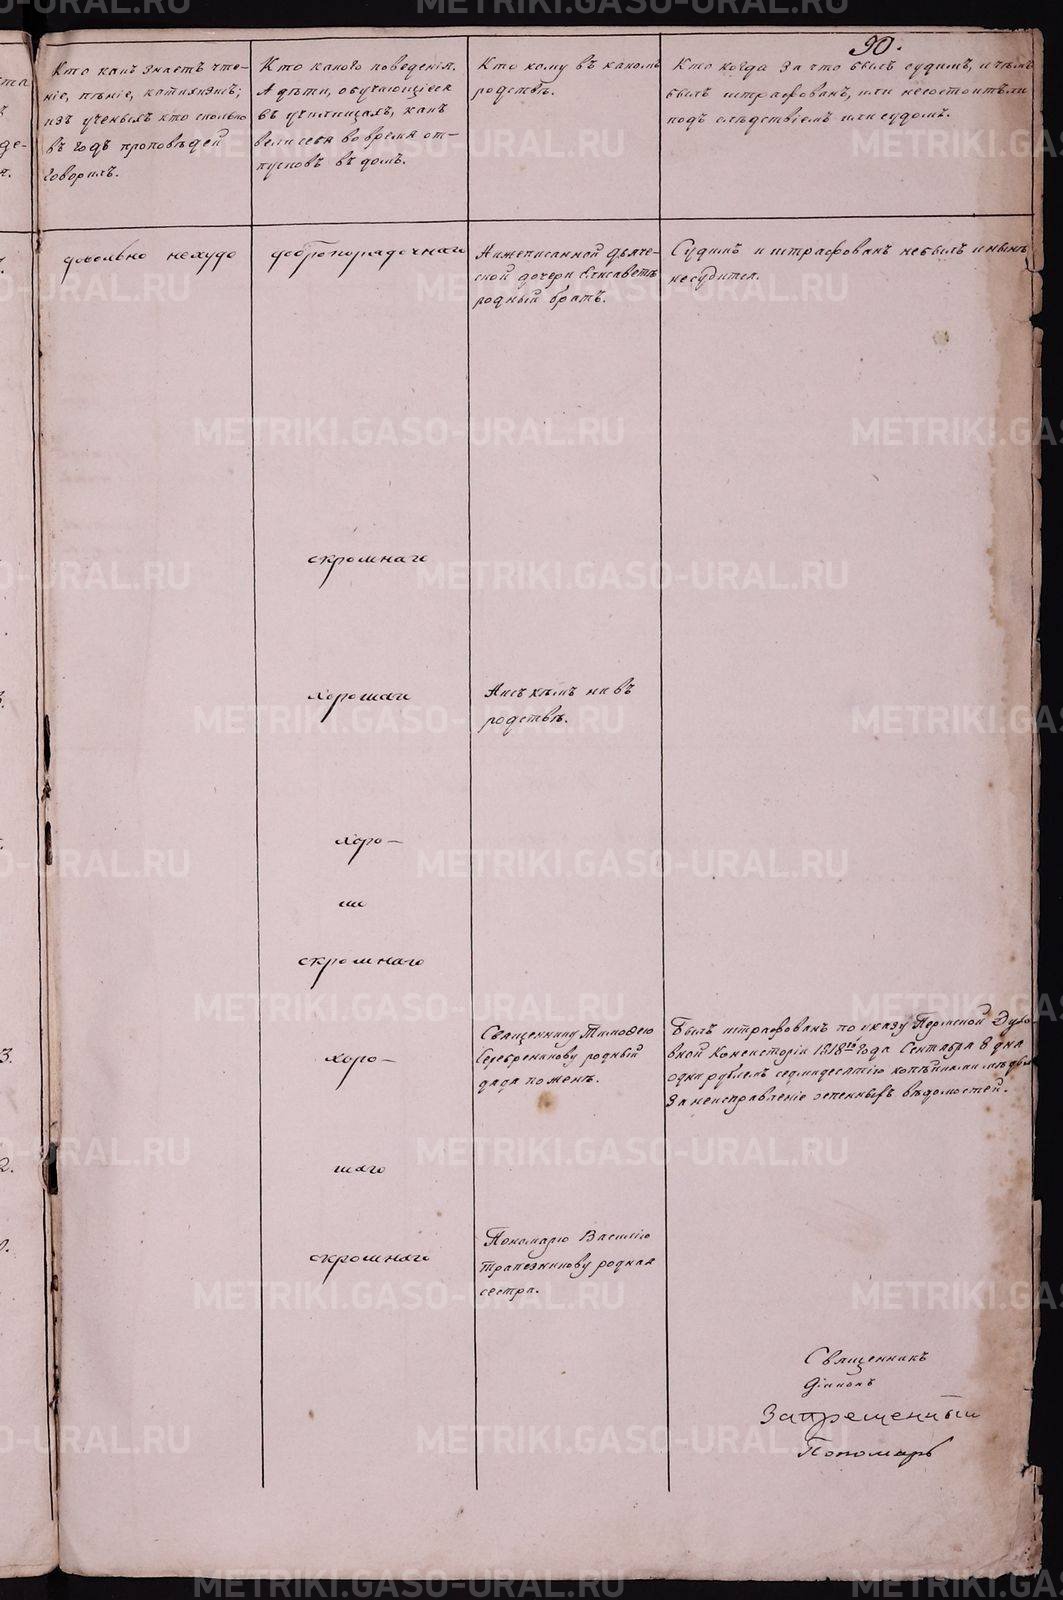 90.
Кто какъ знаетъ чте-
ніе, пѣніе, катихизисъ;
изъ ученыхъ кто сколько
въ годъ проповѣдей
говорилъ.
Кто какого поведенія.
А дѣти, обучающіеся
въ училищахъ, какъ
вели себя во время от-
пусковъ въ домъ.
Кто кому въ какомъ
родствѣ.
Кто когда за что былъ судимъ, и чѣмъ
былъ штрафованъ, или несостоитъ ли
подъ слѣдствіемъ или судомъ.
довольно нехудо
добропорядочнаго
Нижеписанной дьяче-
ской дочери Елисаветѣ
родный братъ.
Судимъ и штрафованъ небылъ и нынѣ
несудится.
скромнаго
хорошаго
Ни съ кѣмъ не въ
родствѣ.
хоро-
ше
скромнаго
хоро-
шаго
Священнику Тимоѳею
Серебренникову родный
дядя по женѣ.
Былъ штрафованъ по указу Пермской Духо-
вной Консисторіи 1818го года Сентября 8 дня
однимъ рублемъ седмидесятію копѣйками мѣдью
за неисправленіе исповѣдныхъ вѣдомостей.
скромнаго
Пономарю Василію
Трапезникову родная
сестра.
Священникъ
Діаконъ
Запрещенный
Пономарь
METRIKI.GASO-URAL.RU